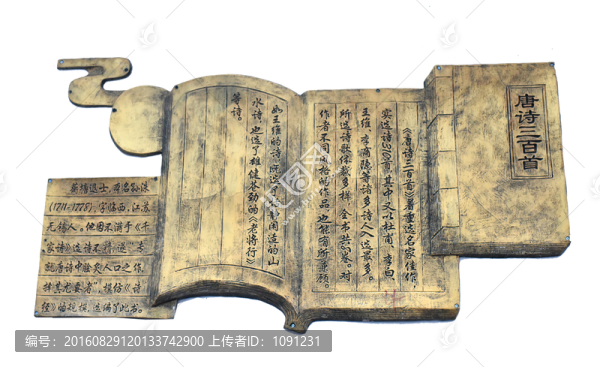 唐诗三百首
《唐诗三百首》着重选名家佳作,
实选诗310首,其中又以杜甫、李白、
王维、李商隐等诸多诗人入选最多。
所选诗歌体裁多样,全书共卷,对
作者不同风格的作品也能有所兼顾。
如王维的诗,既选了闲适的山
水诗,也选了雄健苍劲的《老将行》
等诗。
蘅塘退士,原名孙洙
(1711-1778),字临西,江苏
无锡人。他因不满于《千
家诗》选诗不精,遂“专
就唐诗中脍炙人口之作,
择其尤要者”,模仿《诗
经》的规模,选编了此书。
编号:20160829120133742900 上传者ID:1091231